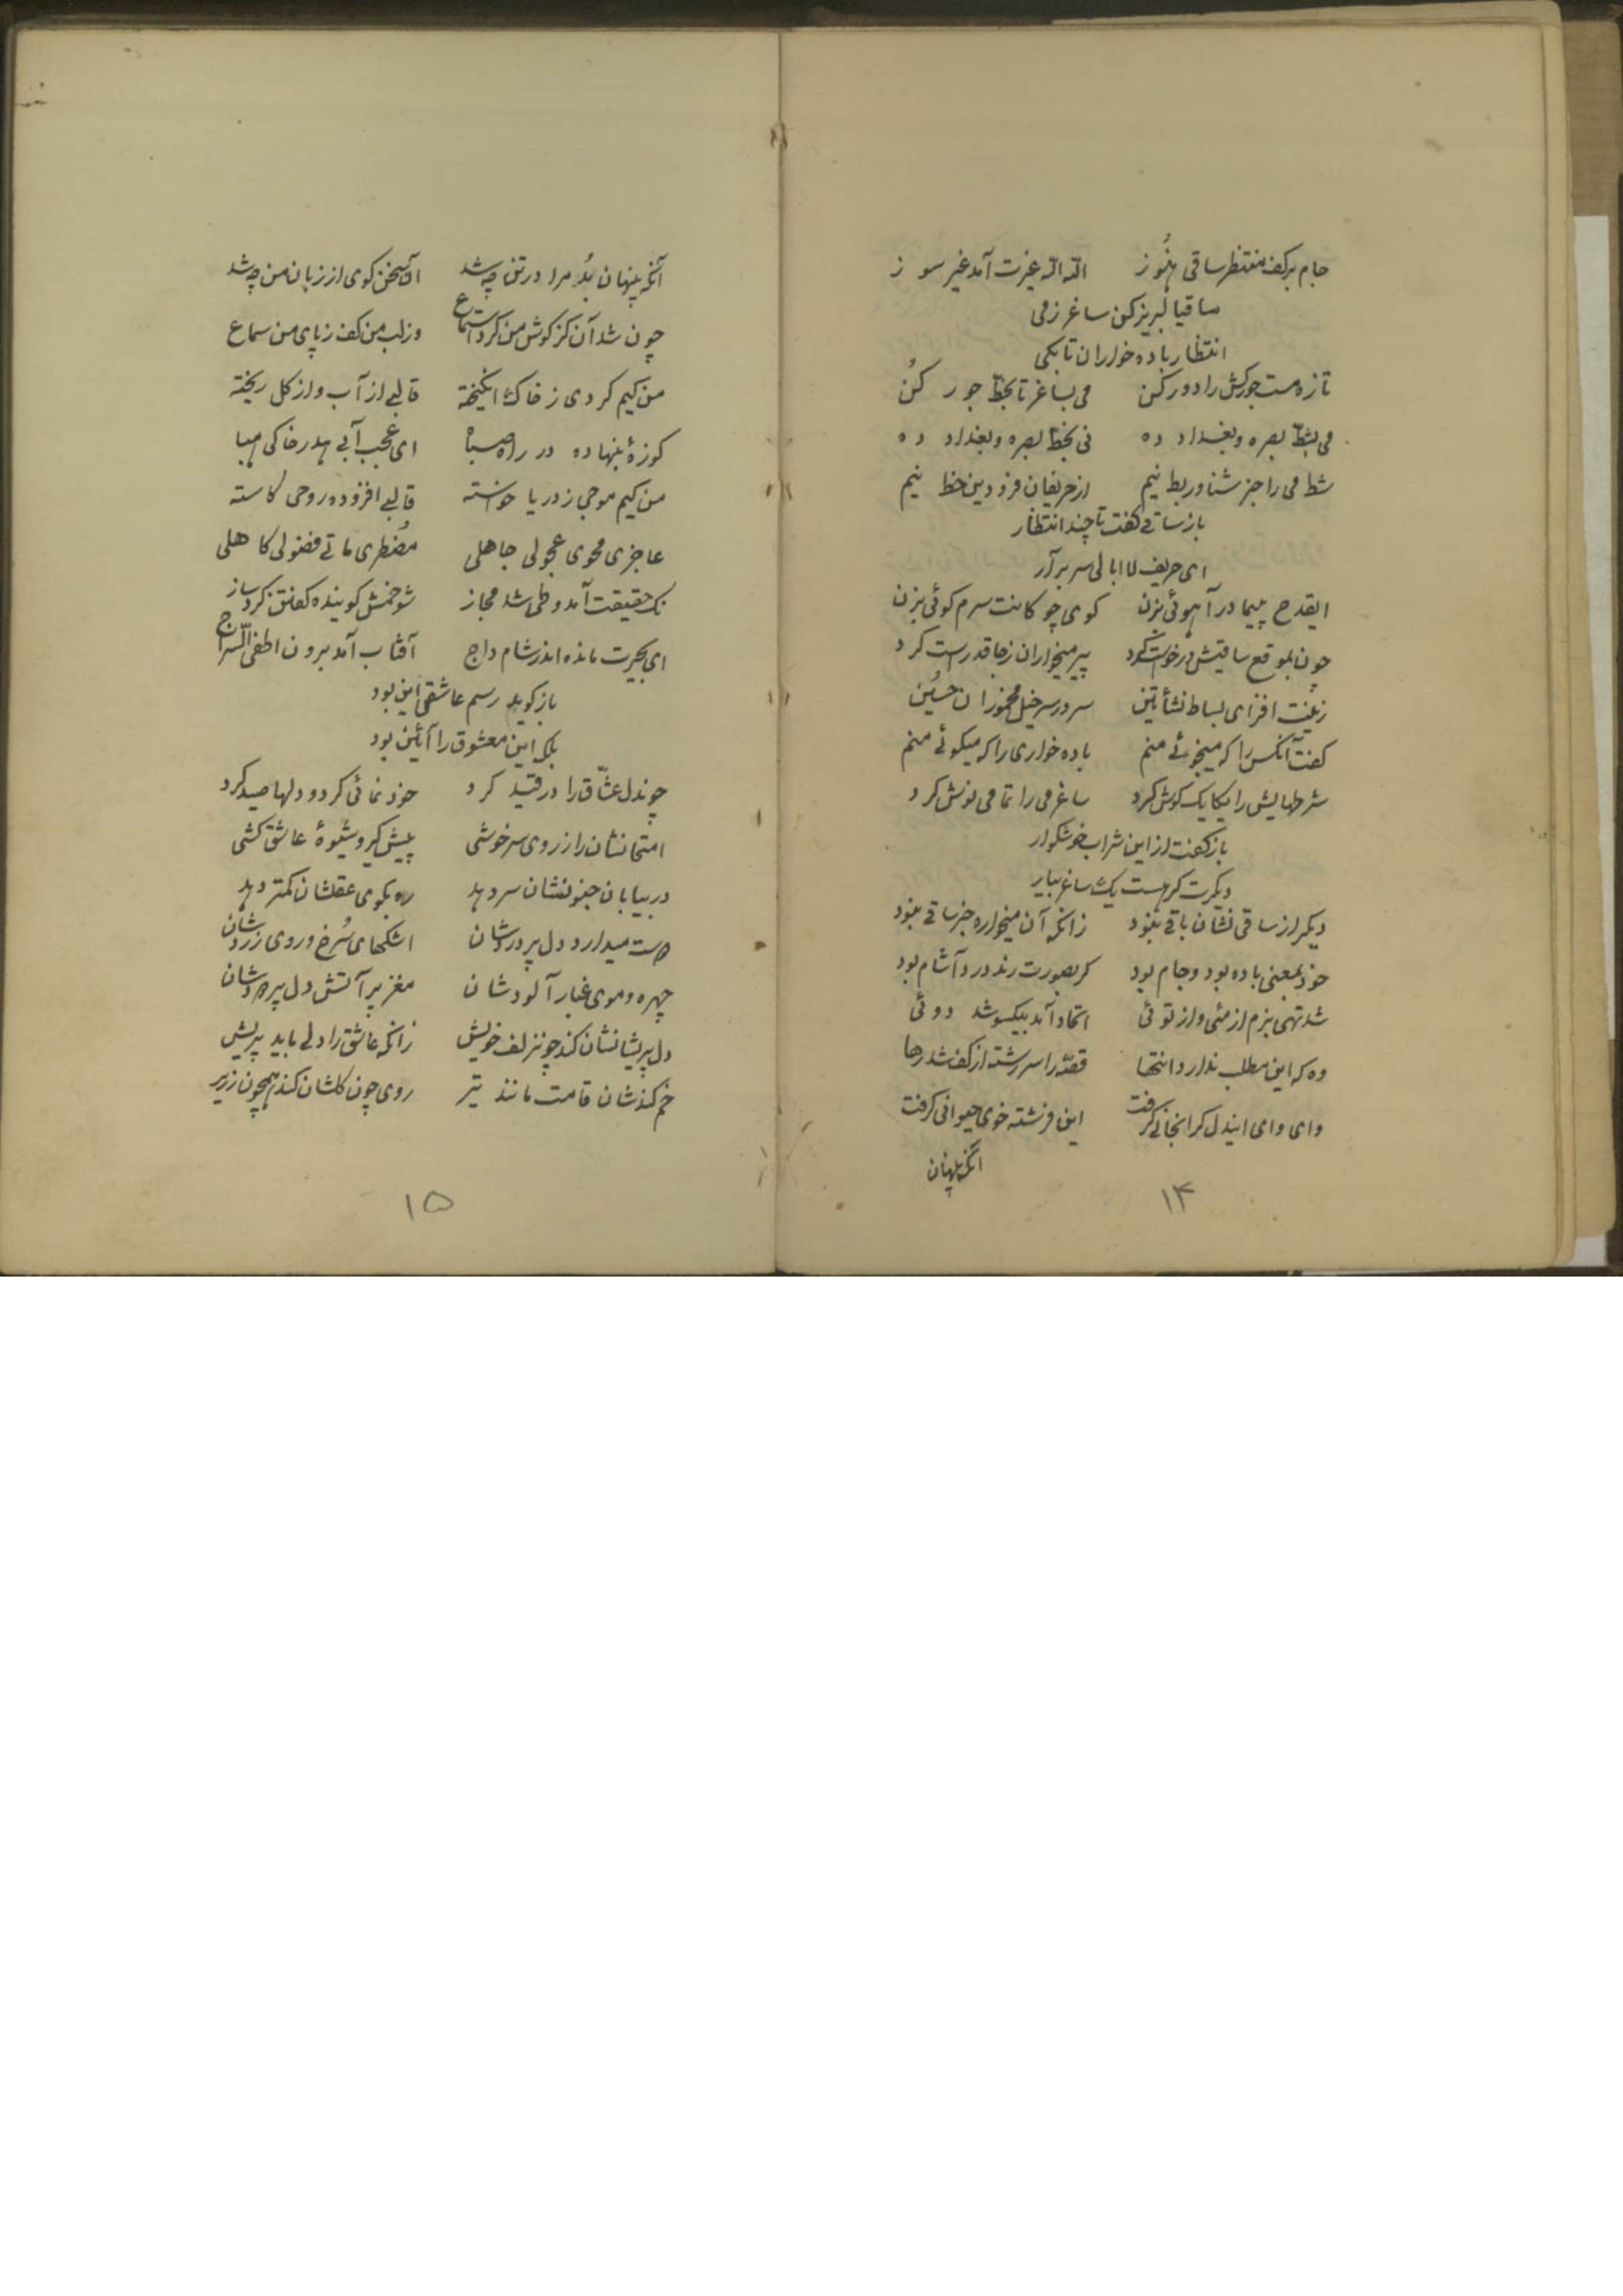 جام بر کف منتظر ساقی هنُوز اللّه اللّه غیرت آمد غیر سوز
ساقیا لبریز کن ساغر ز می
انتظار باده خواران تا بکی
تازه مست جور کش را دور کن می بساغر تا بخطّ جور کُن
می بشطّ بصره و بغداد ده نی بخطّ بصره و بغداد ده
شط می را جز شناور بط نیم از حریفان فزودین خط نیم
باز ساقی کفت تا چند انتظار
ای حریف لاابالی سر برآر
ایقدح پیما درآ هوئی بزن کوی چوکانت سرم کوئی بزن
چون بموقع ساقیش درخواست کرد پیر میخواران ز جا قد راست کرد
زینت افزای بساط نشأتین سرور سر خیل مخموران حسُین
کفت آنکس را که میجوئی منم باده خواری را که میکوئی منم
شرطهایش را یکایک کوش کرد ساغر می را تمامی نوش کرد
باز کفت از این شراب خوشکوار
دیکرت کر هست یک ساغر بیار
دیکر از ساقی نشان باقی نبود زانکه آن میخواره جز ساقی نبود
خود بمعنی باده بود و جام بود کر بصورت رند درد آشام بود
شد تهی بزم از منئی و از توئی اتحاد آمد بیکسو شد دوئی
وه که این مطلب ندارد انتها قصّه را سررشته از کف شد رها
وای وای ایندل کرانجانی کرفت این فرشته خوی حیوانی کرفت
آنکه پنهان
۱۴
آنکه پنهان بُد مرا در تن چه شد آن سخن کوی از زبان من چه شد
چون شد آن کز کوش من کرد استماع وز لب من کف ز پای من سماع
من کیم کردی ز خاک انکیخته قالبی از آب و از کل ریخته
کوزهٔ بنهاده در راه صبا ای عجب آبی هدر خاکی هبا
من کیم موجی ز دریا خواسته قالبی افزوده روحی کاسته
عاجزی محوی عجولی جاهلی مُضطری ماتی فضولی کاهلی
نک حقیقت آمد و طی شد مجاز شو خمش کوینده کفتن کرد ساز
ای بحیرت مانده اندر شام داج آفتاب آمد برون اطفی السّراج
باز کوید رسم عاشقی این بود
بلکه این معشوق را آئین بود
چوندل عشّاق را در قید کرد خودنمائی کرد و دلها صید کرد
امتحانشان را ز روی سرخوشی پیش کیرد شیوهٔ عاشق کشی
در بیابان جنونشان سر دهد ره بکوی عقلشان کمتر دهد
دوست میدارد دل پر دردشان اشکهای سُرخ و روی زردشان
چهره و موی غبار آلودشان مغز پر آتش دل پر دودشان
دل پریشانشان کند چونزلف خویش زانکه عاشق را دلی باید پریش
خم کندشان قامت مانند تیر روی چون کلشان کند همچون زریر
۱۵